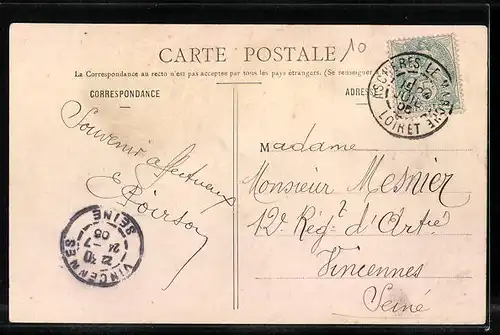 CARTE POSTALE
10
La Correspondance au recto n'est pas acceptée par tous les pays étrangers. (Se renseigner
CORRESPONDANCE
ADRES
ASCHÈRES LE MARCHÉ
JUIL
05
LOIRET
Souvenir affectueux
Madame
Monsieur Mesnier
12e Régt d'Artie
Vincennes
Seine
VINCENNES
SEINE
24 -7
05